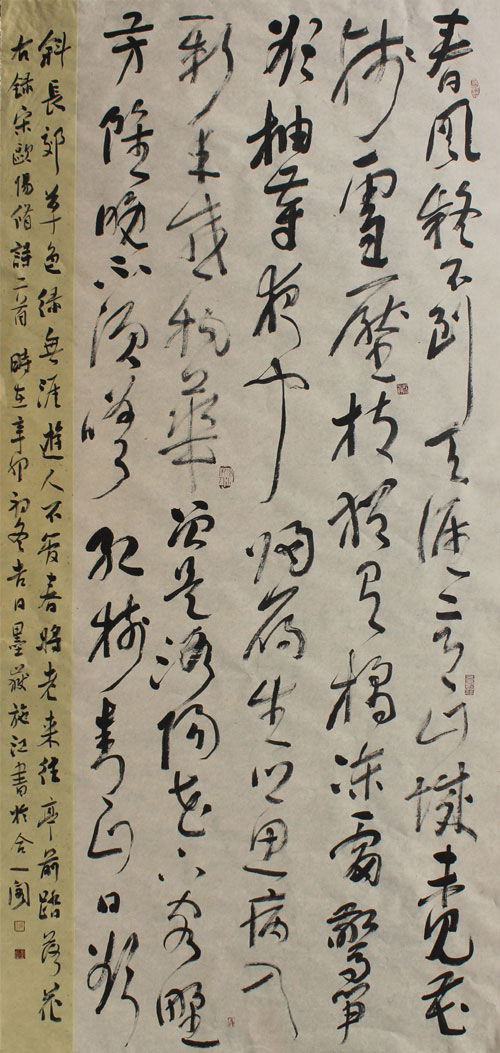 春風疑不到天涯二月山城未見花
殘雪壓枝猶有橘凍雷驚笋
欲抽芽夜聞歸雁生鄉思病入
新年感物華曾是洛陽花下客野
芳雖晚不須嗟紅樹青山日欲
斜長郊草色绿無涯遊人不管春將老来往亭前踏落花
右録宋歐陽脩詩二首時在辛卯初冬吉日墨施江書於合一閣